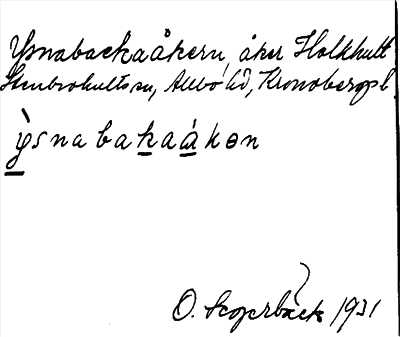 Ysnabackaåkern, åker Holkhult
Stenbrohults sn, Allbo hd, Kronobergs l.
ỳ̠snabak̠aá̠kɵn
O. Segerbäck 1931